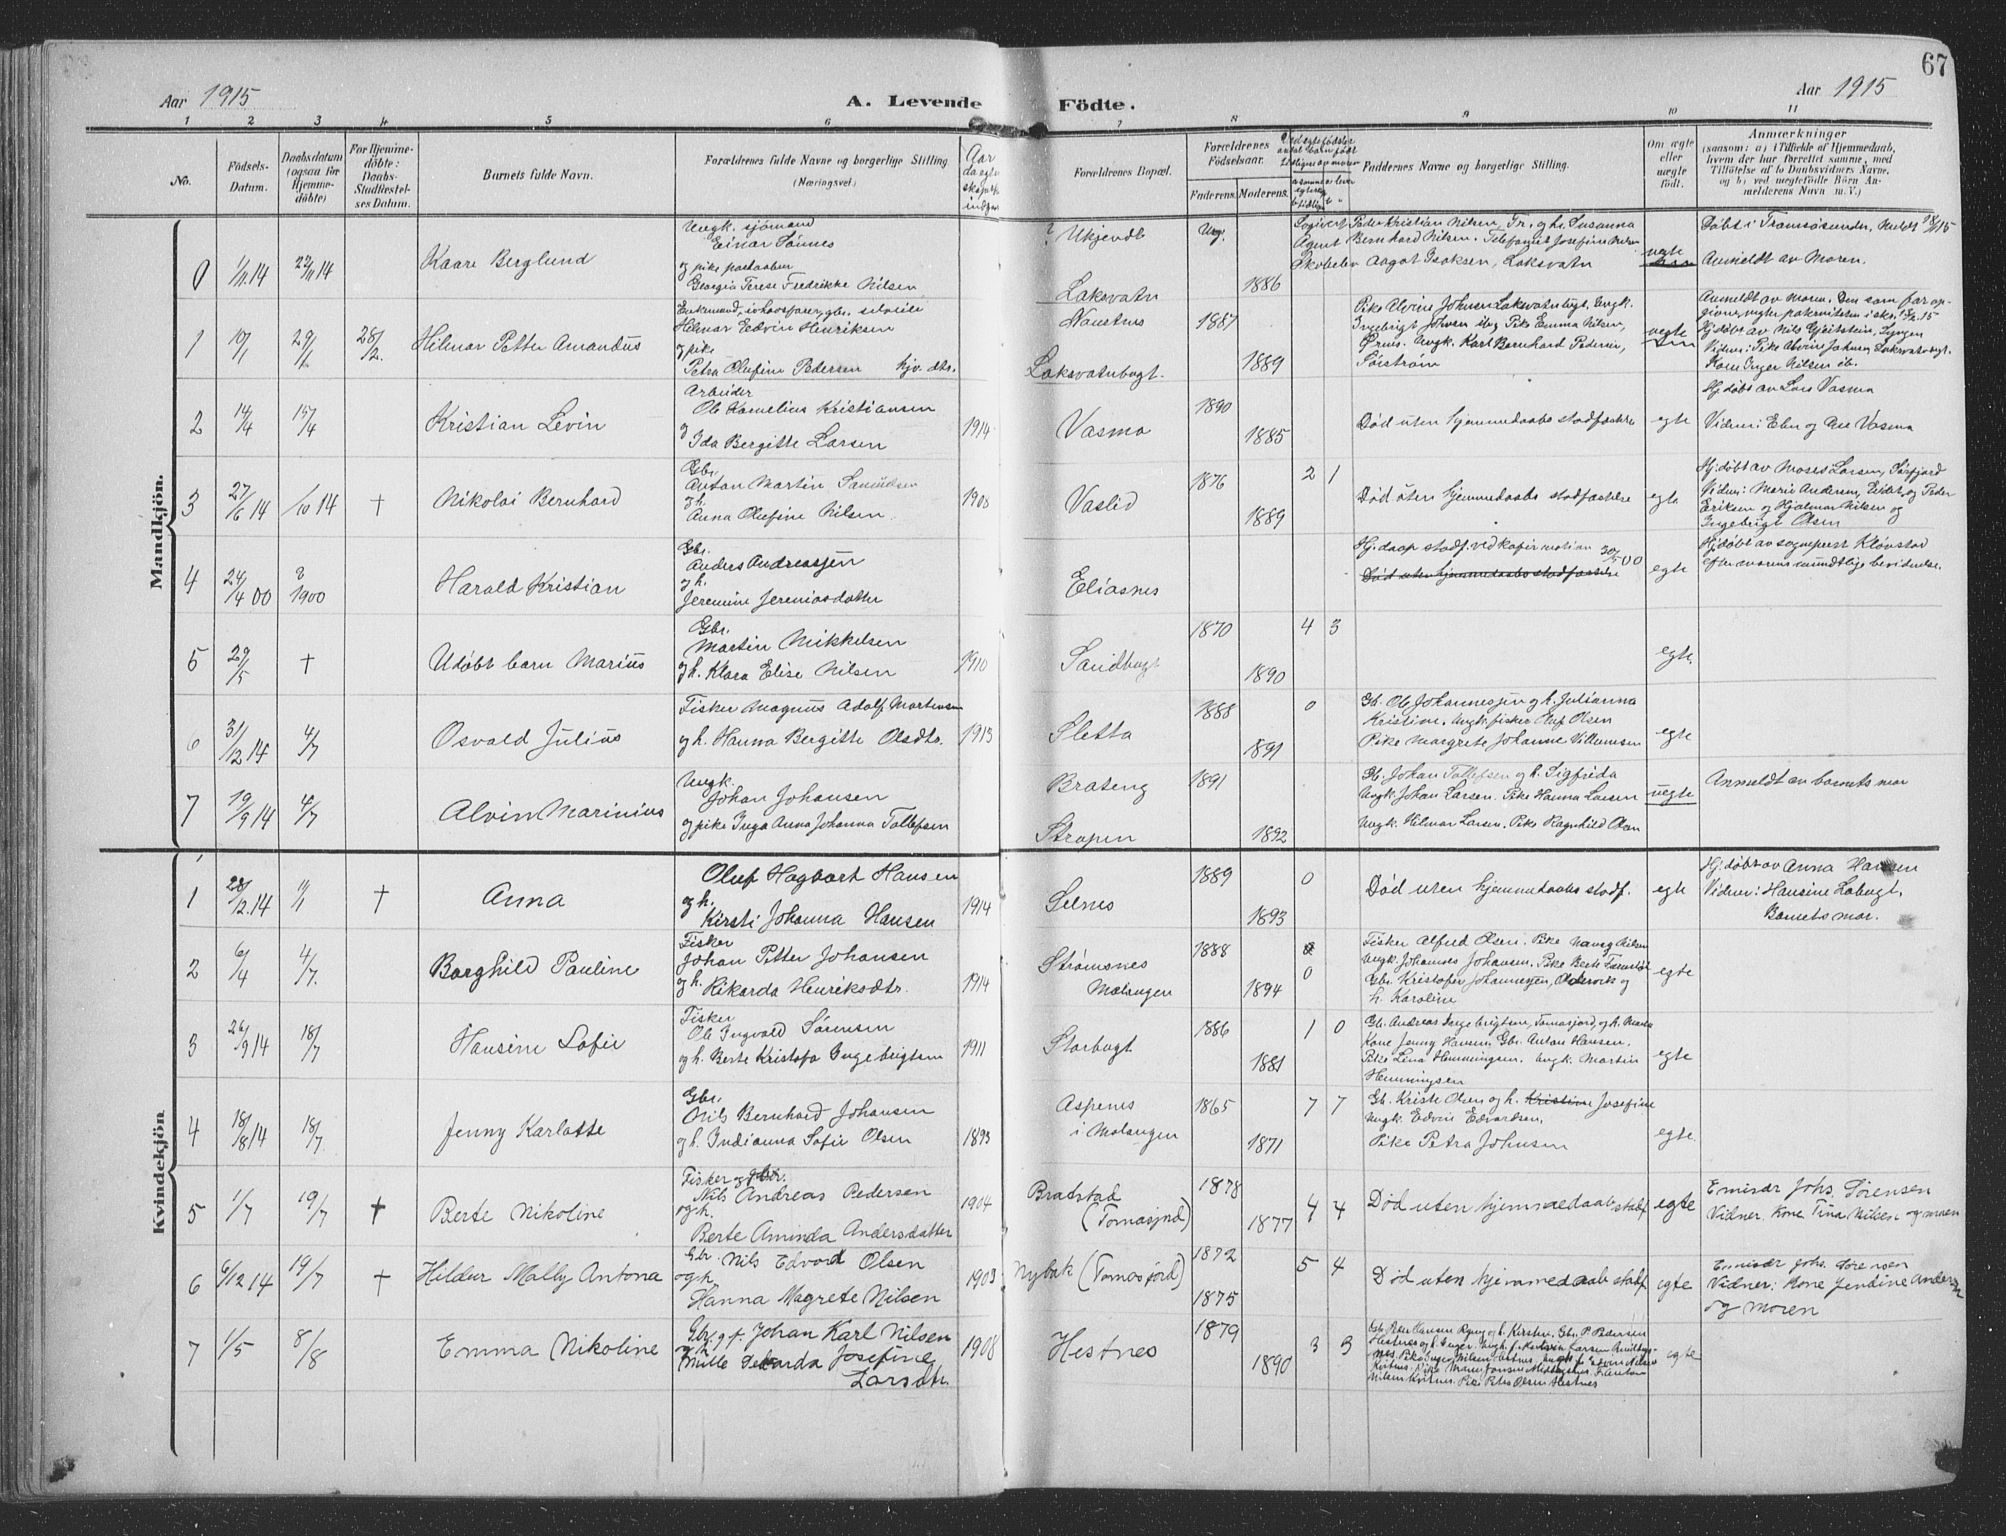 67
Aar 1915
A. Levende
Födte.
Aar 1915
1 2 3 4 5 6 7 8 9 10 11
No.
Födsels-
Datum.
Daabsdatum
(ogsaa for
Hjemme-
döbte)
For Hjemme-
döbte:
Daabs-
Stadfæstel-
ses Datum.
Barnets fulde Navn.
Forældrenes fulde Navne og borgerlige Stilling
(Næringsvei.)
Aar
Forældrenes Bopæl.
Forældrenes
Födselsaar.
Faderens.
Moderens.
Faddernes Navne og borgerlig Stilling.
Om ægte
eller
uægte
födt.
Anmærkninger
(saasom: a) i Tilfælde af Hjemmedaab,
hvem der har forrettet samme, med
Tilföielse af to Daabsvidners Navne,
og b) ved uægtefödte Börn An-
melderens Navn m. V.)
Mandkjön.
0 1/11.14 22/11 14 Kaare Berglund
Ungk. sjømand
Einar Sønnes
og pike
Georgia Terese Fredrikke Nilsen
? Ukjendt
Laksvatn
1886
Peder Kristian Nilsen, Fr. og h. Susanna
Agent Bernhard Nilsen. Telefonist Josefine Nilsen
Aagot Isaksen, Laksvatn
uegte
Døbt i Tromsøsundet, meldt
Anmeldt av Moren.
1 10/1 29/1 28/2. Hilmar Petter Amandus
Enkemand,
Hilmar Edvin Henriksen
og pike
Petra Olufine Pedersen
Naustnes
Laksvatnbugt.
1887
1889
Pike Alvine Johnsen Laksvatnbugt, Ungk.
Ingebrigt Johnsen ibg Pike Emma Nilsen,
Ungk. Karl Bernhard Pedersen,
uegte
Anmeldt av Moren. Den som far op-
Hj.døbt av Nils Lyngen
Vidner: Pike Alvine Johnsen Laksvatnbugt.
Kone Inger Nilsen ib.
2 14/4 15/4 Kristian Levin
Arbeider
Ole Kornelius Kristiansen
og
Ida Bergitte Larsen
1914
Vasmo
1890
1885
Død uten hjemmedaabs stadfæstelse
egte
Hj. døbt av Lars Vasmo
Vidner: Ellen og Ole Vasmo
3 27/6 14 /10 14 † Nikolai Bernhard
Gbr.
Anton Martin Samuelsen
og h.
Anna Olufine Nilsen
1900
Vaslid
1876
1889
2 1
Død uten hjemmedaabs stadfæstelse
egte
Hj. døbt av Moses Larsen,
Vidner: Marie Andersen, Eidet, og Peder
Eriksen og Hjalmar Nilsen og
Ingebrigt Olsen
4 24/4 00 1900 Harald Kristian
Gbr.
Anders Andreassen
og h.
Jeremine Jeremiasdatter
Eliasnes
Hj. daap stadf. ved 30/5 00
Død uten hjemmedaabs stadfæstelse
egte
Hj. døbt av sognepræst Kløvstad
efter morens mundtlige bevidnelse.
5 29/5 † Udøbt barn Marius
Gbr.
Martin Mikkelsen
og h. Klara Elise Nilsen
1910
Sandbugt
1870
1890
4 3
egte.
6 31/12 14 4/7 Osvald Julius
Fisker Magnus Adolf Mortensen
og h. Hanna Bergitte Olsdtr.
1913
Sletta
1888
1891
0
Gb. Ole Johannessen og h. Julianna
Kristine. Ungk. fisker Oluf Olsen
Pike Margrete Johanne Villumsen
egte
7 19/9 14 4/7 Alvin Marinius
Ungk.
Johan Johansen
og pike Inga Anna Johanna Tollefsen
Brateng
Strupen
1891
1892
Gb. Johan Tollefsen og h. Sigfrida
Ungk. Johan Larsen. Pike Hanna Larsen
Ungk. Hilmar Larsen. Pike Ragnhild Olsen
uegte
Anmeldt av barnets mor
Kvindekjön.
1 28/12.14 1/1 † Anna
Oluf Hagbart Hansen
og h.
Kirsti Johanna Hansen
1914
Selnes
1889
1893
0
Død uten hjemmedaabs stadf.
egte
Hj. døbt av Anna Hansen
Vidner: Hansine Labugt,
Barnets mor.
2 6/4 4/7. Borghild Pauline
Fisker
Johan Petter Johansen
og h. Rikarda Henriksdtr.
1914
Strømsnes
Malangen
1888
1894
0
Fisker Alfred Olsen. Pike Nilsen
Ungk. Johannes Johansen. Pike Berte
Gbr. Kristofer Johannessen, og
h. Karoline
egte
3 26/9 14 18/7 Hansine Sofie
Fisker
Ole Ingvald Sørensen
og h. Berte Kristofa Ingebrigtsen
1911
Storbugt
1886
1881
1 0
Gb. Andreas Ingebrigtsen, Tomasjord, og h.
Kone Jenny Hansen, Gbr. Anton Hansen.
Pike Lina Hemmingsen. Ungk. Martin
Hemmingsen
egte
4 18/8 14 18/7. Jenny Karlotte
Gbr.
Nils Bernhard Johansen
og h. Indianna Sofie Olsen
1893
Aspenes
i Malangen
1865
1871
7 7
Gb. Kriste Olsen og h. Kristine Josefine
Ungk. Edvin Edvardsen.
Pike Petra Johnsen
egte.
5 1/7 19/7 † Berte Nikoline
Fisker og gbr.
Nils Andreas Pedersen
og h.
Berte Aminda Andersdatter
1904
Bratstad
(Tomasjord)
1878
1877
4 4
Død uten hjemmedaabs stadf.
egte
Emisær Johs. Sørensen
Vidner. Kone Tina Nilsen og moren
6 6/12 14 19/7 † Hildur Mally Antona
Gbr. Nils Edvard Olsen
og h.
Hanna Magrete Nilsen
1903
Nybak (Tomasjord)
1872
1875
5 4
Død uten hjemmedaabs stadf
egte
Emisær Johs. Sørensen
Vidner: Kone Jendine Andersen
og moren
7 1/5 8/8 Emma Nikoline
Gbr. og f. Johan Karl Nilsen
og h.
Josefine
Larsdtr.
1908
Hestnes
1879
1890
3 3
og h. Kirsten. Gbr. P. Pedersen
Hestnes og h. Inger. Ungk.
Nilsen Kvitnes. Pike Petra Olsen Hestnes
egte